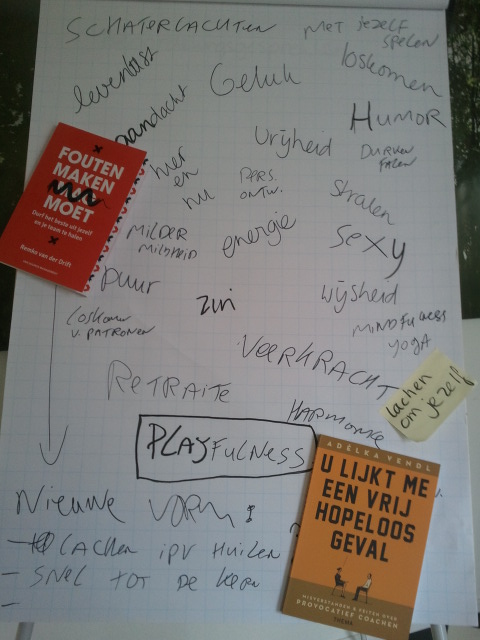 SCHATERLACHTEN
MET JEZELF
SPELEN
levenslust
Geluk
loskomen
aandacht
HUMOR
Vrijheid
DURVEN
FALEN
hier
en
nu
PERS.
ONTW.
Stralen
FOUTEN
MAKEN
MOET
Durf het beste uit jezelf
en je team te halen
Remko van der Drift
MILDER
MILDHEID
energie
sexy
puur
zin
wijsheid
loskomen
v. PATRONEN
MINDFULNESS
YOGA
VEERKRACHT
RETRAITE
lachen
om jezelf
HARMONIE
PLAYFULNESS
ADELKA VENDL
U LIJKT ME
EEN VRIJ
HOPELOOS
GEVAL
MISVERSTANDEN & FEITEN OVER
PROVOCATIEF COACHEN
THEMA
NIEUWE VORM!
- LACHEN IPV HUILEN
- SNEL TOT DE KERN
-